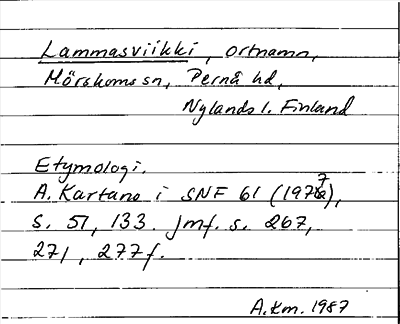 Lammasviikki, ortnamn,
Mörskoms sn, Pernå hd,
Nylands l. Finland
Etymologi.
A. Kartano i SNF 61 (1977),
s. 51, 133. Jmf. s. 267,
271, 277f.
A.Km. 1987